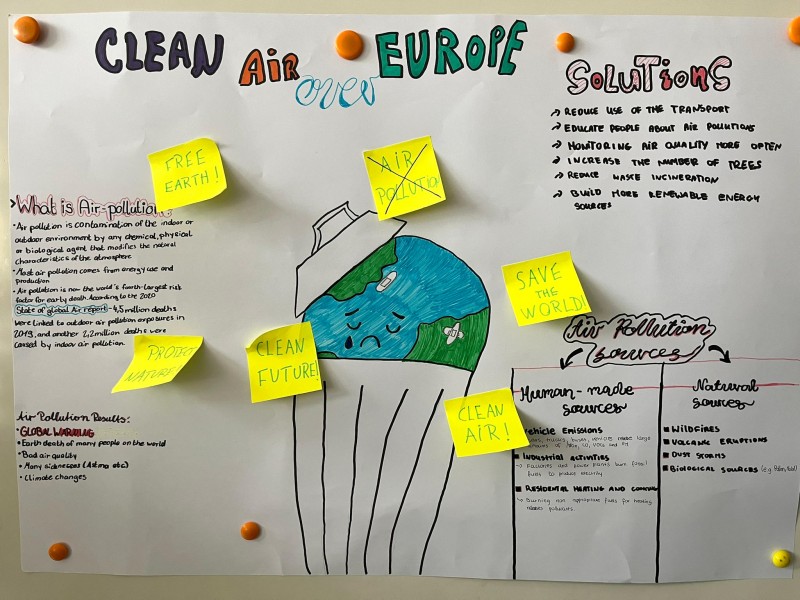 CLEAN AIR over EUROPE
FREE
EARTH!
AIR
POLLUTION
What is Air-pollution
• Air pollution is contamination of the indoor or
outdoor environment by any chemical, physical
or biological agent that modifies the natural
characteristics of the atmosphere
• Most air pollution comes from energy use and
production
• Air pollution is now the world's fourth-largest risk
factor for early death. According to the 2020
State of global Air report - 4,5 million deaths
were linked to outdoor air pollution exposures in
2019, and another 2,2 million deaths were
caused by indoor air pollution.
PROTECT
NATURE!
CLEAN
FUTURE!
SAVE
THE
WORLD!
CLEAN
AIR!
Air Pollution Results:
• GLOBAL WARMING
• Earth death of many people on the world
• Bad air quality
• Many sicknesses (Astma etc)
• Climate changes
SOLUTIONS
→ REDUCE USE OF THE TRANSPORT
→ EDUCATE PEOPLE ABOUT AIR POLLUTIONS
→ MONITORING AIR QUALITY MORE OFTEN
→ INCREASE THE NUMBER OF TREES
→ REDUCE WASTE INCINERATION
→ BUILD MORE RENEWABLE ENERGY
SOURCES
Air Pollution
sources
Human-made
sources
Vehicle Emissions
INDUSTRIAL ACTIVITIES
→ Factories and power plants burn fossil
fuels to produce electricity
RESIDENTAL HEATING AND COOKING
→ Burning non appropriate fuels for heating
pollutants
Natural
sources
WILDFIRES
VOLCANIC ERUPTIONS
DUST STORMS
BIOLOGICAL SOURCES (e.g.